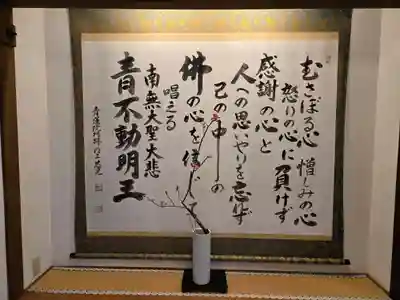 むさぼる心 憎しみの心
怒りの心に負けず
感謝の心と
人への思いやりを忘れず
己の中の
佛の心を信じ
唱える
南無大聖大悲
青不動明王